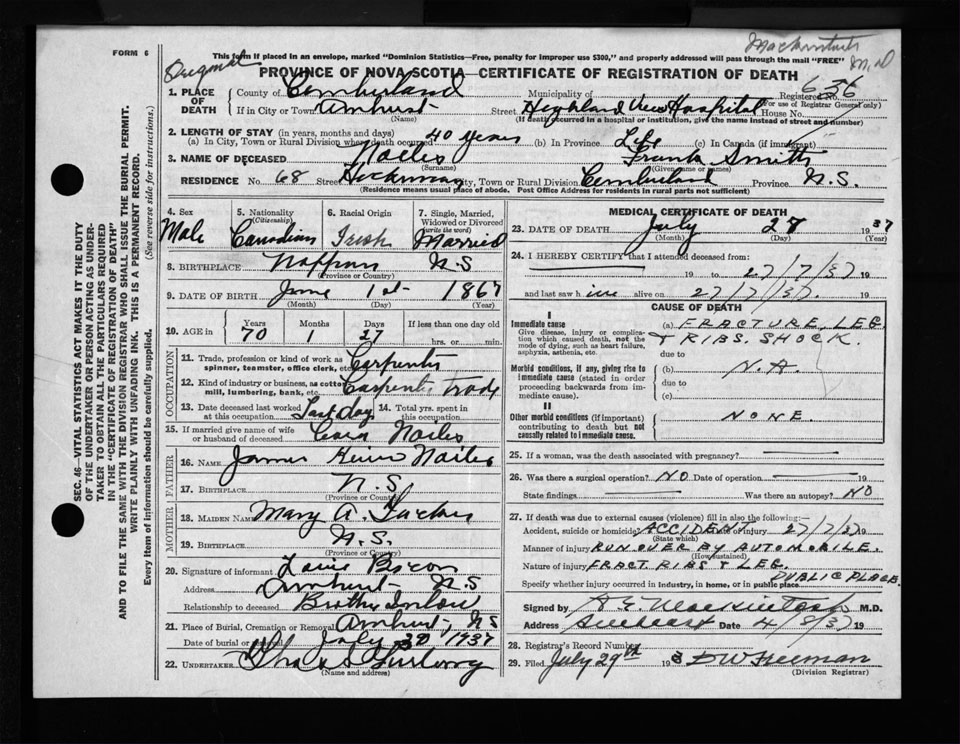 FORM 6
This form if placed in an envelope, marked "Dominion Statistics—Free, penalty for improper use $300," and properly addressed will pass through the mail "FREE"
Original
PROVINCE OF NOVA SCOTIA—CERTIFICATE OF REGISTRATION OF DEATH
M.D
1. PLACE OF DEATH
County of Cumberland
Municipality of
Registered No. 636
(For use of Registrar General only)
If in City or Town Amherst
(Name)
Street Highland View Hospital House No.
(If death occurred in a hospital or institution, give the name instead of street and number)
2. LENGTH OF STAY (in years, months and days)
(a) In City, Town or Rural Division where death occurred 40 years (b) In Province Life (c) In Canada (if immigrant)
3. NAME OF DECEASED Noiles Frank Smith
(Surname) (Given name or names)
RESIDENCE No. 68 Street Hickman City, Town or Rural Division Cumberland Province N.S.
(Residence means usual place of abode. Post Office Address for residents in rural parts not sufficient)
4. Sex
Male
5. Nationality
(Citizenship)
Canadian
6. Racial Origin
Irish
7. Single, Married, Widowed or Divorced
(write the word)
Married
8. BIRTHPLACE Nappan N.S
(Province or Country)
9. DATE OF BIRTH June 1st 1867
(Month) (Day) (Year)
10. AGE in
Years
70
Months
1
Days
27
If less than one day old
hrs. or min.
OCCUPATION
11. Trade, profession or kind of work as spinner, teamster, office clerk, etc. Carpenter
12. Kind of industry or business, as cotton mill, lumbering, bank, etc. Carpenter trade
13. Date deceased last worked at this occupation Last day 14. Total yrs. spent in this occupation
15. If married give name of wife or husband of deceased Cora Noiles
FATHER
16. NAME James Noiles
17. BIRTHPLACE N.S
(Province or Country)
MOTHER
18. MAIDEN NAME Mary A.
19. BIRTHPLACE N.S.
(Province or Country)
20. Signature of informant Bacon
Address Amherst N.S
Relationship to deceased Brother Inlaw
21. Place of Burial, Cremation or Removal Amherst, NS
Date of burial or removal July 30 1937
22. UNDERTAKER
(Name and address)
MEDICAL CERTIFICATE OF DEATH
23. DATE OF DEATH July 28 1937
(Month) (Day) (Year)
24. I HEREBY CERTIFY that I attended deceased from:
19 to 27/7/37 19
and last saw him alive on 27/7/37 19
CAUSE OF DEATH
I
Immediate cause
Give disease, injury or complication which caused death, not the mode of dying, such as heart failure, asphyxia, asthenia, etc.
(a) FRACTURE LEG
& RIBS. SHOCK.
due to
Morbid conditions, if any, giving rise to immediate cause (stated in order proceeding backwards from immediate cause).
(b) N.A.
due to
(c)
II
Other morbid conditions (if important) contributing to death but not causally related to immediate cause.
NONE
25. If a woman, was the death associated with pregnancy?
26. Was there a surgical operation? NO Date of operation
State findings Was there an autopsy? NO
27. If death was due to external causes (violence) fill in also the following:—
Accident, suicide or homicide? ACCIDENT Date of injury 27/7/37 19
(State which)
Manner of injury RUN OVER BY AUTOMOBILE.
(How sustained)
Nature of injury FRACT. RIBS & LEG.
Specify whether injury occurred in industry, in home, or in public place PUBLIC PLACE
Signed by Mackintosh M.D.
Address Amherst Date 4/8/37 19
28. Registrar's Record Number
29. Filed July 29th 193 DW Freeman
(Division Registrar)
SEC. 46—VITAL STATISTICS ACT MAKES IT THE DUTY
OF THE UNDERTAKER OR PERSON ACTING AS UNDER-
TAKER TO OBTAIN ALL THE PARTICULARS REQUIRED
IN THE "CERTIFICATE OF REGISTRATION OF DEATH"
AND TO FILE THE SAME WITH THE DIVISION REGISTRAR WHO SHALL ISSUE THE BURIAL PERMIT.
WRITE PLAINLY WITH UNFADING INK. THIS IS A PERMANENT RECORD.
Every item of information should be carefully supplied. (See reverse side for instructions.)